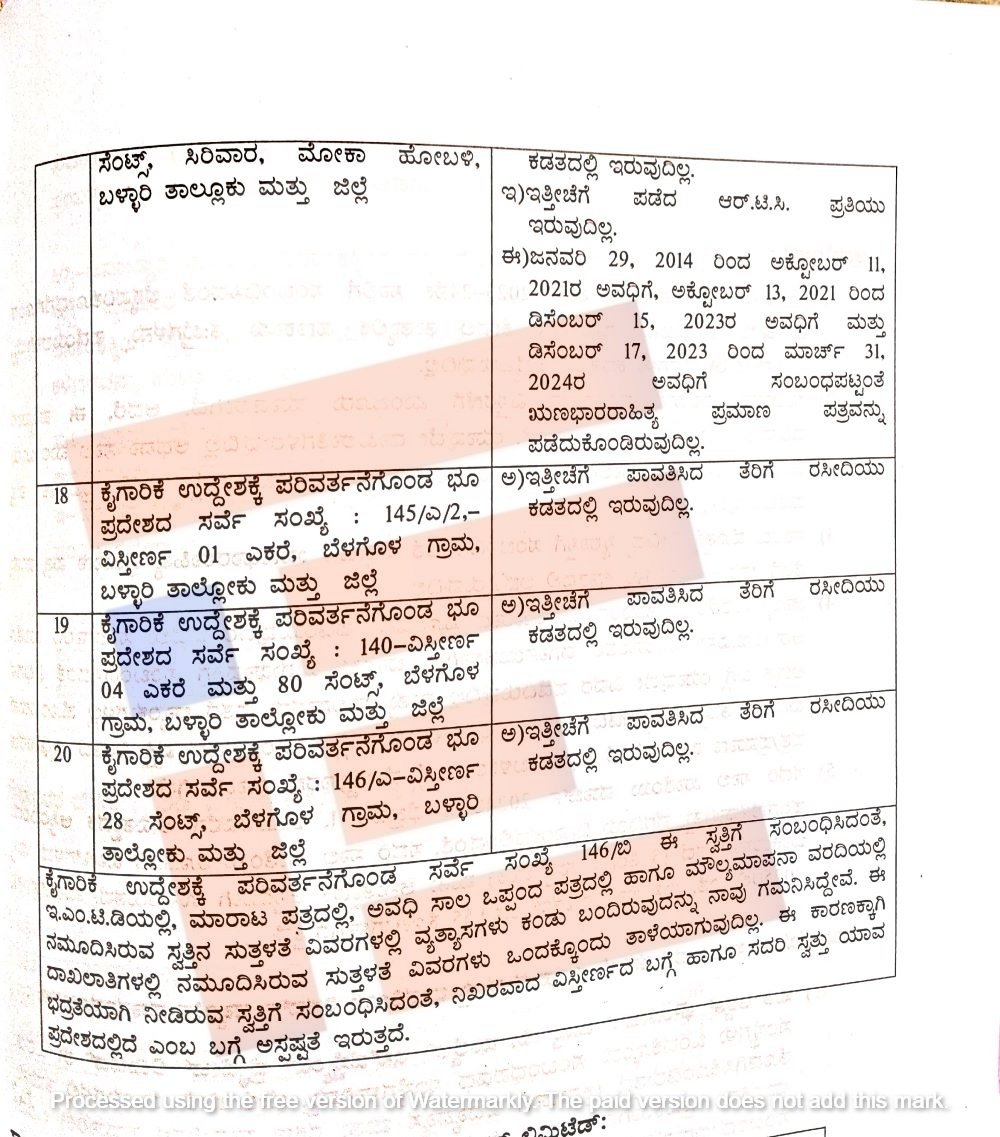 ಸೆಂಟ್ಸ್, ಸಿರಿವಾರ, ಮೋಕಾ ಹೋಬಳಿ,
ಬಳ್ಳಾರಿ ತಾಲ್ಲೂಕು ಮತ್ತು ಜಿಲ್ಲೆ
ಕಡತದಲ್ಲಿ ಇರುವುದಿಲ್ಲ.
ಇ)ಇತ್ತೀಚೆಗೆ ಪಡೆದ ಆರ್.ಟಿ.ಸಿ. ಪ್ರತಿಯು
ಇರುವುದಿಲ್ಲ.
ಈ)ಜನವರಿ 29, 2014 ರಿಂದ ಅಕ್ಟೋಬರ್ 11,
2021ರ ಅವಧಿಗೆ, ಅಕ್ಟೋಬರ್ 13, 2021 ರಿಂದ
ಡಿಸೆಂಬರ್ 15, 2023ರ ಅವಧಿಗೆ ಮತ್ತು
ಡಿಸೆಂಬರ್ 17, 2023 ರಿಂದ ಮಾರ್ಚ್ 31,
2024ರ ಅವಧಿಗೆ ಸಂಬಂಧಪಟ್ಟಂತೆ
ಋಣಭಾರರಾಹಿತ್ಯ ಪ್ರಮಾಣ ಪತ್ರವನ್ನು
ಪಡೆದುಕೊಂಡಿರುವುದಿಲ್ಲ.
18
ಕೈಗಾರಿಕೆ ಉದ್ದೇಶಕ್ಕೆ ಪರಿವರ್ತನೆಗೊಂಡ ಭೂ
ಪ್ರದೇಶದ ಸರ್ವೆ ಸಂಖ್ಯೆ : 145/ಎ/2,–
ವಿಸ್ತೀರ್ಣ 01 ಎಕರೆ, ಬೆಳಗೊಳ ಗ್ರಾಮ,
ಬಳ್ಳಾರಿ ತಾಲ್ಲೋಕು ಮತ್ತು ಜಿಲ್ಲೆ
ಅ)ಇತ್ತೀಚೆಗೆ ಪಾವತಿಸಿದ ತೆರಿಗೆ ರಸೀದಿಯು
ಕಡತದಲ್ಲಿ ಇರುವುದಿಲ್ಲ.
19
ಕೈಗಾರಿಕೆ ಉದ್ದೇಶಕ್ಕೆ ಪರಿವರ್ತನೆಗೊಂಡ ಭೂ
ಪ್ರದೇಶದ ಸರ್ವೆ ಸಂಖ್ಯೆ : 140–ವಿಸ್ತೀರ್ಣ
04 ಎಕರೆ ಮತ್ತು 80 ಸೆಂಟ್ಸ್, ಬೆಳಗೊಳ
ಗ್ರಾಮ, ಬಳ್ಳಾರಿ ತಾಲ್ಲೋಕು ಮತ್ತು ಜಿಲ್ಲೆ
ಅ)ಇತ್ತೀಚೆಗೆ ಪಾವತಿಸಿದ ತೆರಿಗೆ ರಸೀದಿಯು
ಕಡತದಲ್ಲಿ ಇರುವುದಿಲ್ಲ.
20
ಕೈಗಾರಿಕೆ ಉದ್ದೇಶಕ್ಕೆ ಪರಿವರ್ತನೆಗೊಂಡ ಭೂ
ಪ್ರದೇಶದ ಸರ್ವೆ ಸಂಖ್ಯೆ : 146/ಎ–ವಿಸ್ತೀರ್ಣ
28 ಸೆಂಟ್ಸ್, ಬೆಳಗೊಳ ಗ್ರಾಮ, ಬಳ್ಳಾರಿ
ತಾಲ್ಲೋಕು ಮತ್ತು ಜಿಲ್ಲೆ
ಅ)ಇತ್ತೀಚೆಗೆ ಪಾವತಿಸಿದ ತೆರಿಗೆ ರಸೀದಿಯು
ಕಡತದಲ್ಲಿ ಇರುವುದಿಲ್ಲ.
ಕೈಗಾರಿಕೆ ಉದ್ದೇಶಕ್ಕೆ ಪರಿವರ್ತನೆಗೊಂಡ ಸರ್ವೆ ಸಂಖ್ಯೆ 146/ಬಿ ಈ ಸ್ವತ್ತಿಗೆ ಸಂಬಂಧಿಸಿದಂತೆ,
ಇ.ಎಂ.ಟಿ.ಡಿಯಲ್ಲಿ, ಮಾರಾಟ ಪತ್ರದಲ್ಲಿ, ಅವಧಿ ಸಾಲ ಒಪ್ಪಂದ ಪತ್ರದಲ್ಲಿ ಹಾಗೂ ಮೌಲ್ಯಮಾಪನಾ ವರದಿಯಲ್ಲಿ
ನಮೂದಿಸಿರುವ ಸ್ವತ್ತಿನ ಸುತ್ತಳತೆ ವಿವರಗಳಲ್ಲಿ ವ್ಯತ್ಯಾಸಗಳು ಕಂಡು ಬಂದಿರುವುದನ್ನು ನಾವು ಗಮನಿಸಿದ್ದೇವೆ. ಈ
ದಾಖಲಾತಿಗಳಲ್ಲಿ ನಮೂದಿಸಿರುವ ಸುತ್ತಳತೆ ವಿವರಗಳು ಒಂದಕ್ಕೊಂದು ತಾಳೆಯಾಗುವುದಿಲ್ಲ. ಈ ಕಾರಣಕ್ಕಾಗಿ
ಭದ್ರತೆಯಾಗಿ ನೀಡಿರುವ ಸ್ವತ್ತಿಗೆ ಸಂಬಂಧಿಸಿದಂತೆ, ನಿಖರವಾದ ವಿಸ್ತೀರ್ಣದ ಬಗ್ಗೆ ಹಾಗೂ ಸದರಿ ಸ್ವತ್ತು ಯಾವ
ಪ್ರದೇಶದಲ್ಲಿದೆ ಎಂಬ ಬಗ್ಗೆ ಅಸ್ಪಷ್ಟತೆ ಇರುತ್ತದೆ.
Processed using the free version of Watermarkly. The paid version does not add this mark.
ಲಿಮಿಟೆಡ್: